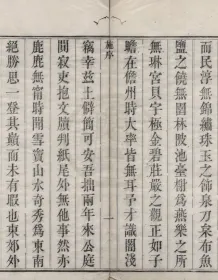 而民淳無錦繡珠玉之飾泉刀枲布魚
鹽之饒無園林陂池臺榭爲燕樂之所
無琳宮貝宇極金碧莊嚴之觀正如子
瞻在儋州時大率皆無耳予才識闇淺
施序
一
竊幸茲土僻簡可妄吾拙兩年來公庭
間寂吏抱文牘判紙尾外無他事然亦
鹿鹿無甯時開雪竇山水奇秀爲東南
絕勝思一登其巔而未有暇也東郊外